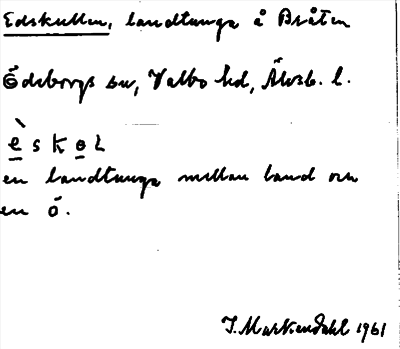 Edskullen, landtunga å Bråten
Ödeborgs sn, Valbo hd, Älvsb. l.
è s k ɵ l
en landtunga mellan land och
en ö.
J. Markendahl 1961